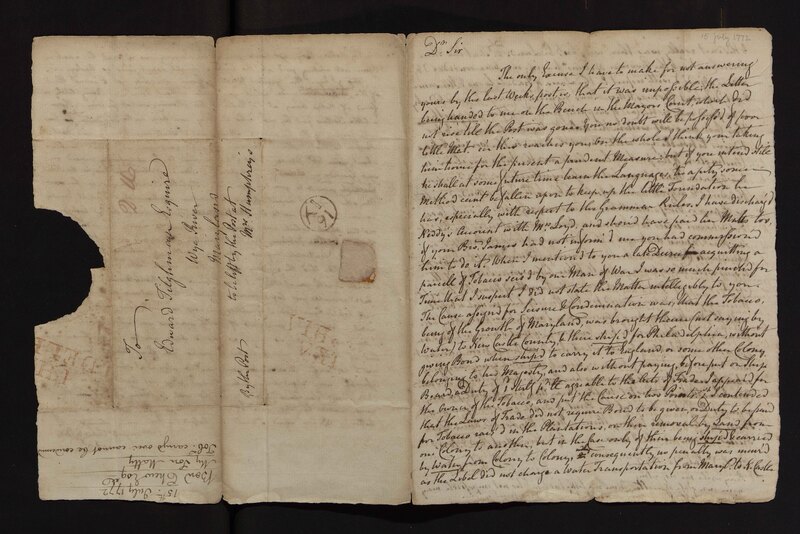 To
Edward Tilghman Esquire
Wye River
Maryland
to be left by the Post at
Mr. Humphreys
By the Post
15th July 1772
Benj Chew Esq
My Son Matty
Tob. carryd over cannot be condemnd
15 July 1772
Dr. Sir
The only Excuse I have to make for not answering
yours by the last Weeks post is, that it was impossible the Letter
being handed to me on the Bench in the Mayors Court which did
not rise till the Post was gone. You no doubt will be possess'd of poor
little Mat. ere this reaches you. On the whole I think your taking
him home for the present a prudent Measure, but if you intend still
he shall at some future time learn the Languages, tis a pity some
Method can't be fallen upon to keep up the little Foundation he
has, especially with respect to the Grammar Rules. I have discharg'd
Kiddy's Account with Mr. Loyd, and should have paid for Mattys too
if your Bro. James had not inform'd me you had commissioned
him to do it. When I mentioned to you a late Decree acquitting a
parcell of Tobacco seiz'd by our Man of War I was so much pushed for
Time that I suspect I did not state the Matter intelligibly to you
The Cause assigned for Seizure & Condemnation was, that the Tobacco,
being of the Growth of Maryland, was brought thence (not saying by
Water) to New Castle County & there ship'd for Philadelphia, without
giving Bond when ship'd to carry it to England, or some other Colony
belonging to his Majesty, and also without paying, before put on Ship
Board, a Duty of 1d Half pr lb. agreable to the Acts of Trade. I appeared for
the owner of the Tobacco, and put the Cause on two Points, 1st I contended
that the Laws of Trade did not require Bond to be given, or Duty to be paid
for Tobacco raised in the Plantations, on their removal by Land from
one Colony to another, but in the case only of their being shipd & carried
by Water from Colony to Colony & consequently no penalty was incurd
as the Libel did not charge a Water Transportation from Maryld. to N. Castle